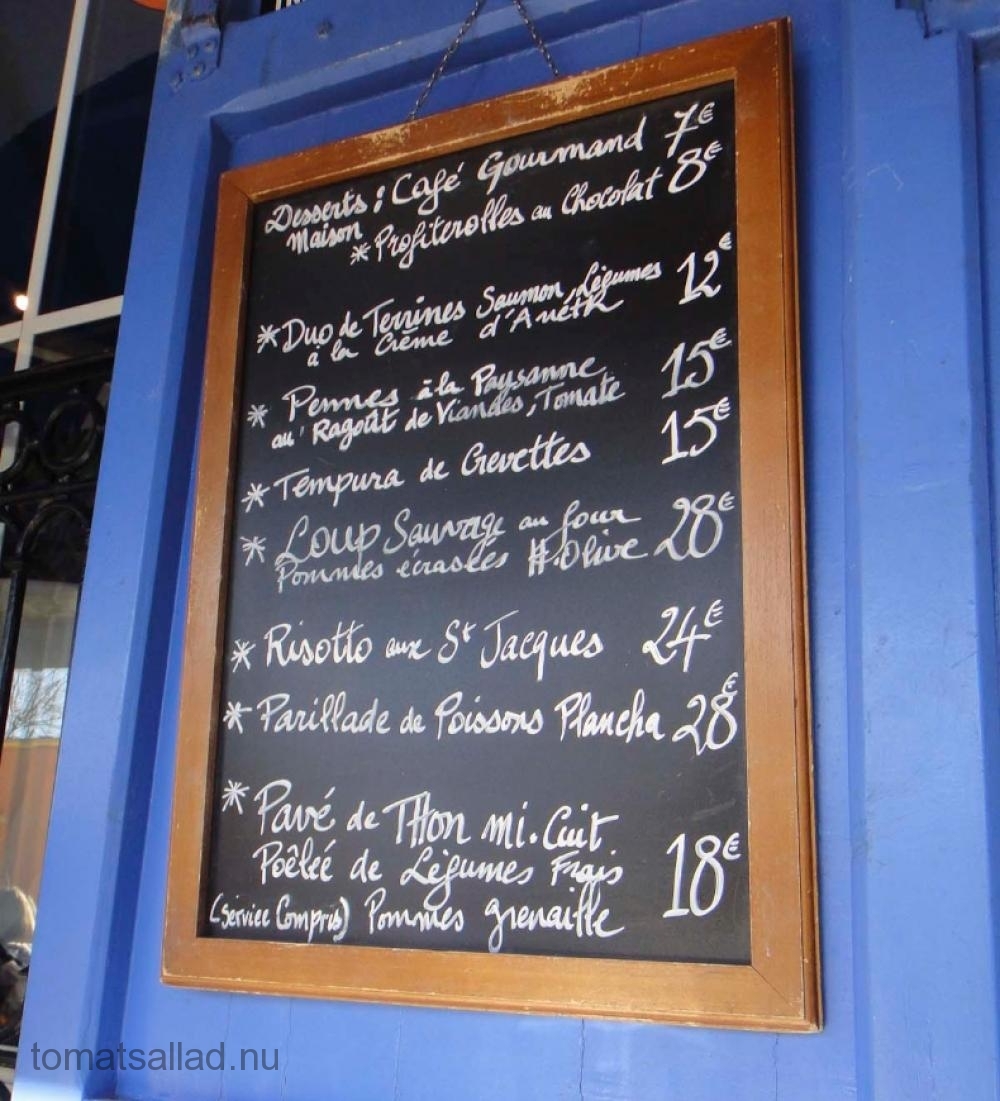 Desserts : Café Gourmand 7€
Maison * Profiterolles au Chocolat 8€
* Duo de Terrines Saumon, Légumes 12€
à la Crème d'Aneth
* Pennes à la Paysanne 15€
au Ragoût de Viandes, Tomate
* Tempura de Crevettes 15€
* Loup Sauvage au four 28€
Pommes écrasées H.Olive
* Risotto aux St Jacques 24€
* Parillade de Poissons Plancha 28€
* Pavé de THon mi.Cuit
Poêleé de Légumes Frais 18€
(Service Compris) Pommes grenaille
tomatsallad.nu